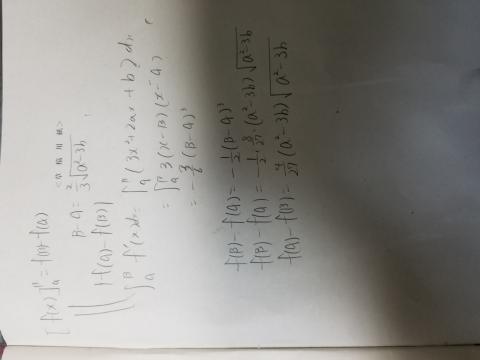 [f(x)]_α^β = f(β)-f(α)
β-α = 2/3 √(a²-3b)
f(α)-f(β)
∫_α^β f'(x)dx = ∫_α^β (3x²+2ax+b)dx
= ∫_α^β 3(x-β)(x-α)
= -3/6 (β-α)³
f(β)-f(α) = -1/2 (β-α)³
f(β)-f(α) = -1/2 · 8/27 · (a²-3b)√(a²-3b)
f(α)-f(β) = 4/27 (a²-3b)√(a²-3b)